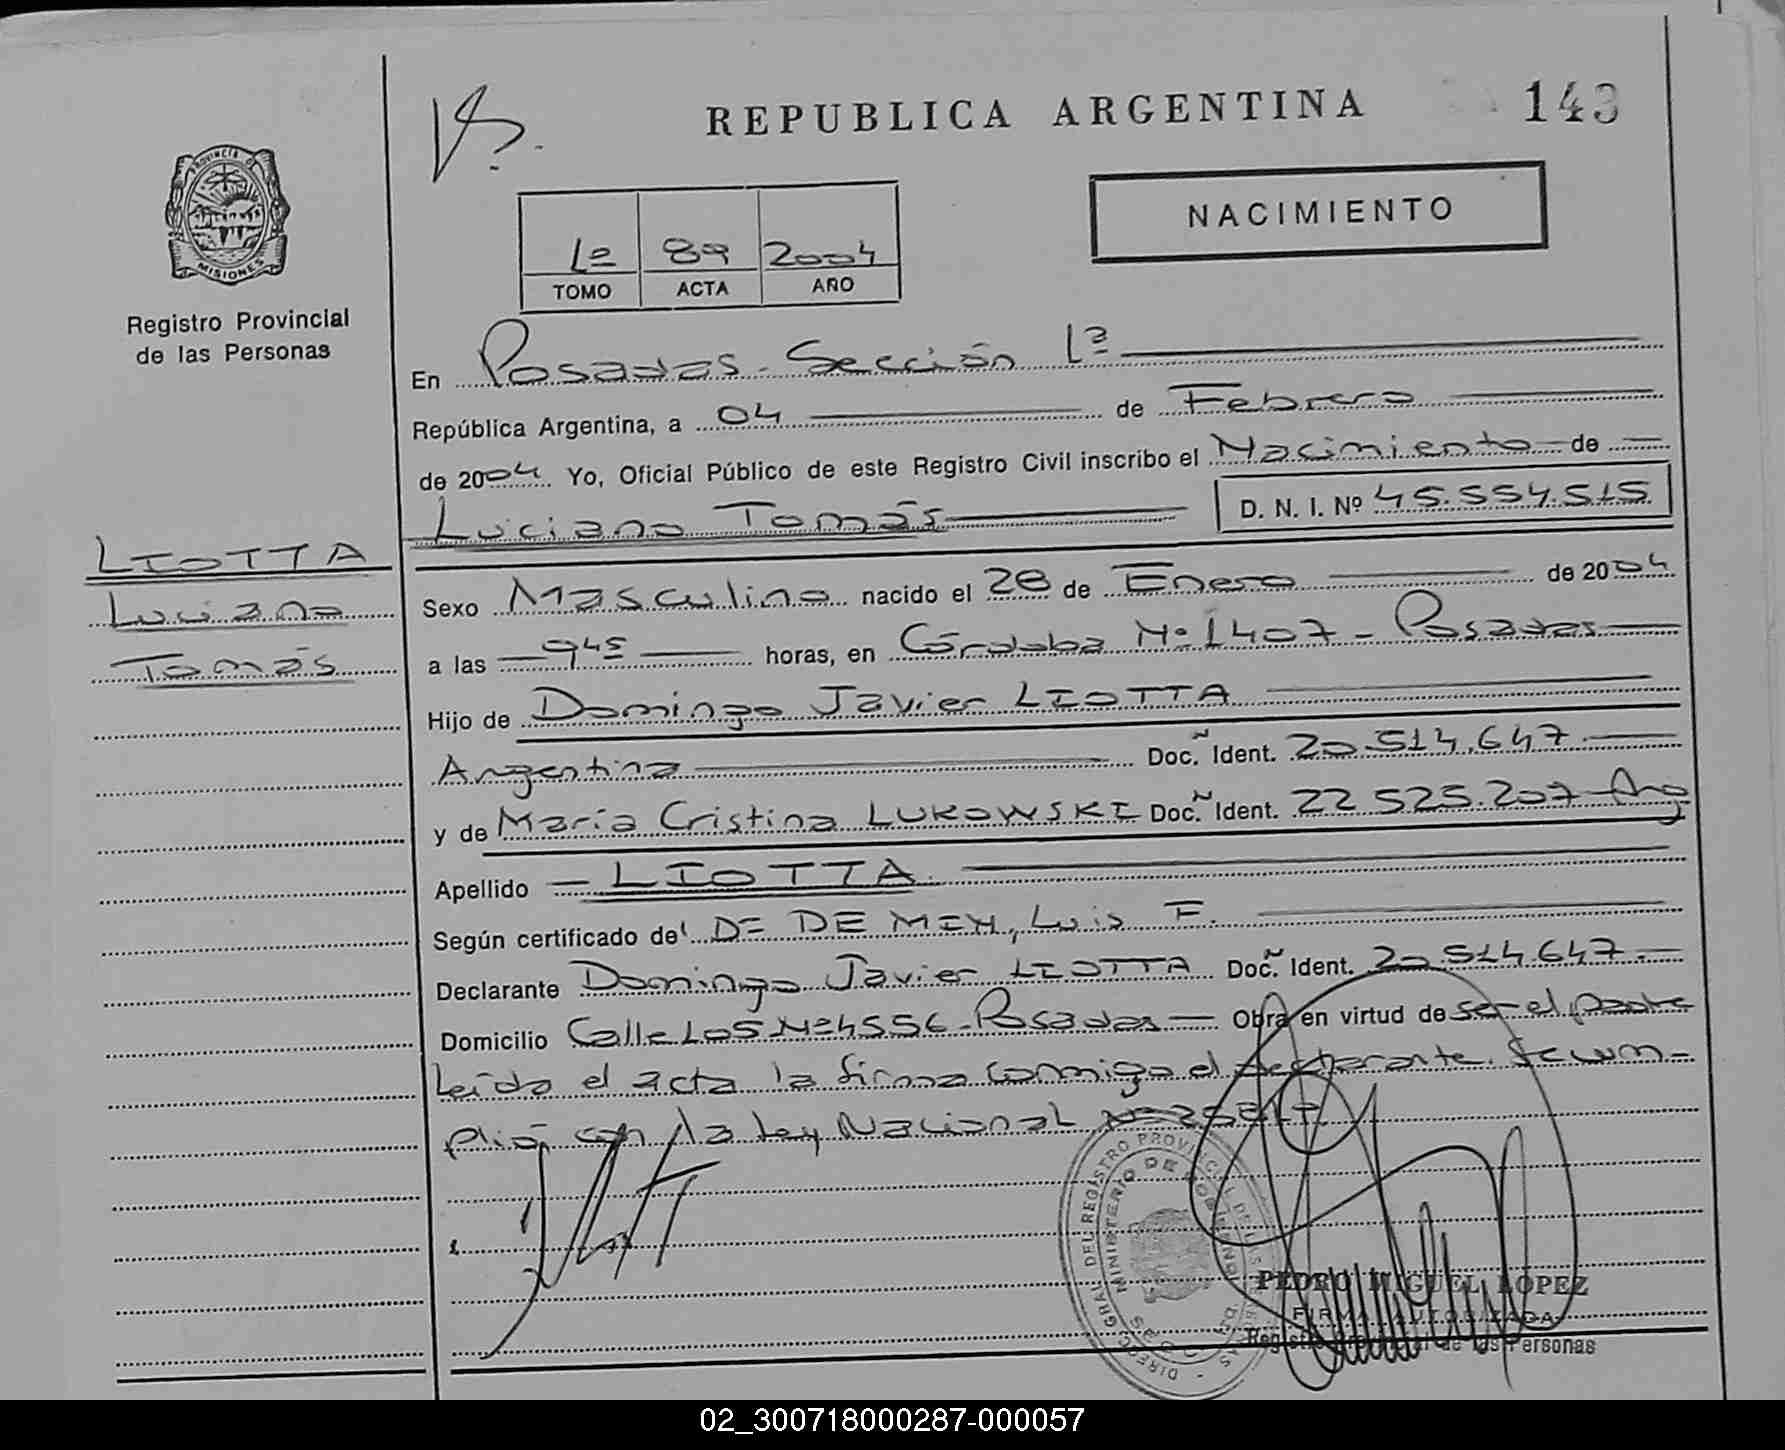 REPUBLICA ARGENTINA
143
PROVINCIA DE
MISIONES
Registro Provincial
de las Personas
NACIMIENTO
1º 89 2004
TOMO ACTA AÑO
En Posadas - Sección 1ª
República Argentina, a 04 de Febrero
de 2004 Yo, Oficial Público de este Registro Civil inscribo el Nacimiento de
Luciano Tomás D. N. I. Nº 45.554.515
LIOTTA
Luciano
Tomás
Sexo Masculino nacido el 28 de Enero de 2004
a las 9 45 horas, en Córdoba Nº 1407 - Posadas
Hijo de Domingo Javier LIOTTA
Argentina Doc. Ident. 20.514.647
y de María Cristina LUKOWSKI Doc. Ident. 22.525.207 - Arg
Apellido LIOTTA
Según certificado de Luis F.
Declarante Domingo Javier LIOTTA Doc. Ident. 20.514.647
Domicilio Calle 105 Nº 4556 - Posadas - Obra en virtud de ser el padre
Leída el acta la firma conmigo el declarante. Se cum-
plió con la Ley Nacional
PEDRO MIGUEL LOPEZ
FIRMA AUTORIZADA
Registro Provincial de las Personas
02_300718000287-000057